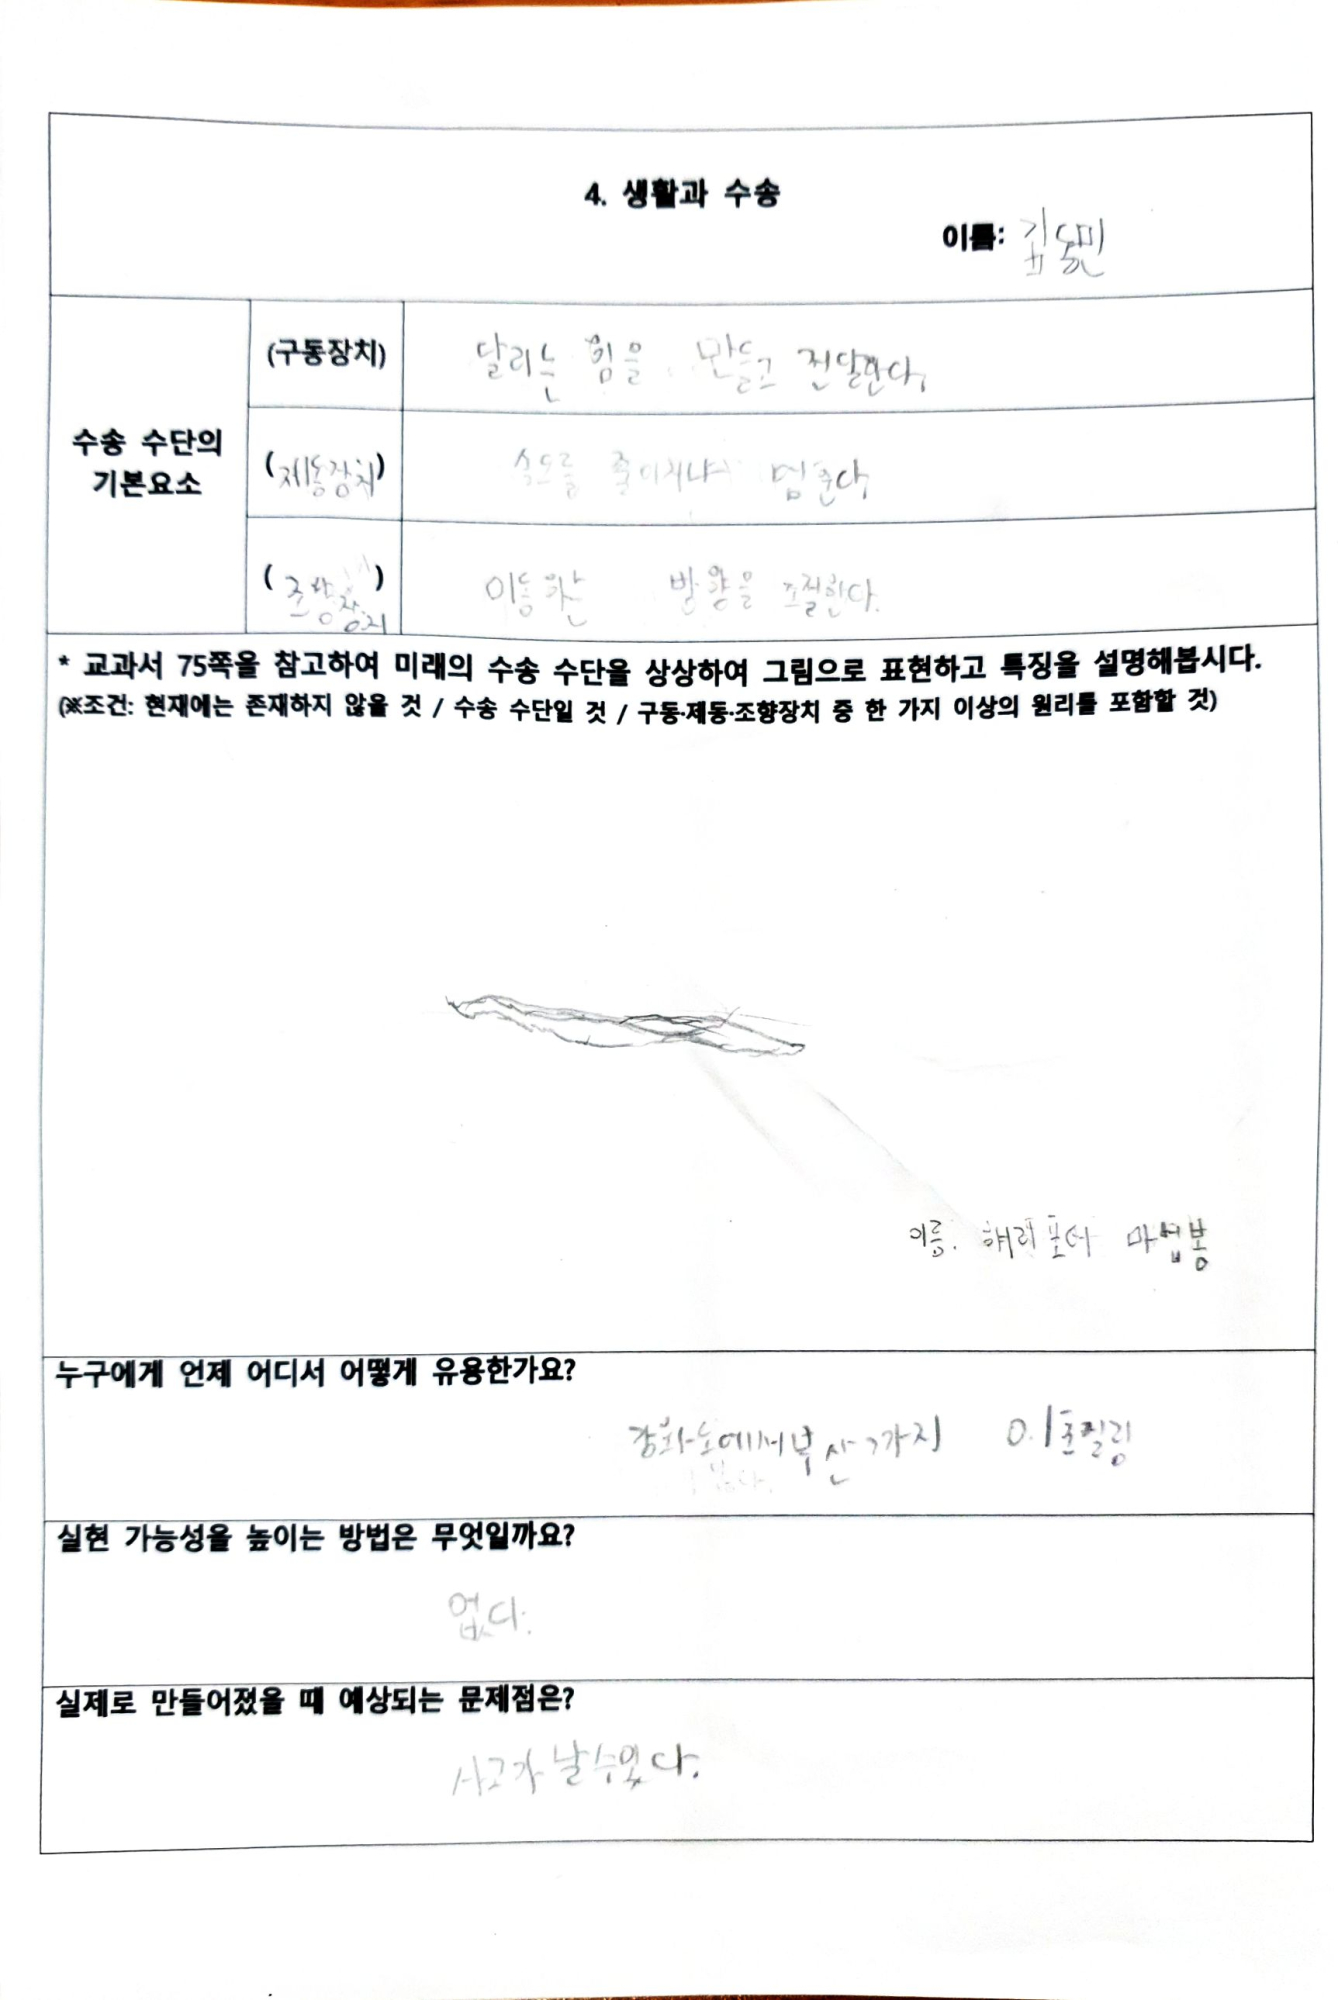 4. 생활과 수송
이름: 김동민
수송 수단의
기본요소
(구동장치) 달리는 힘을 만들고 전달한다.
(제동장치) 속도를 줄이거나 멈춘다.
(조향장치) 이동하는 방향을 조절한다.
* 교과서 75쪽을 참고하여 미래의 수송 수단을 상상하여 그림으로 표현하고 특징을 설명해봅시다.
(※조건: 현재에는 존재하지 않을 것 / 수송 수단일 것 / 구동·제동·조향장치 중 한 가지 이상의 원리를 포함할 것)
이름: 해리포터 마법봉
누구에게 언제 어디서 어떻게 유용한가요?
강화도에서부산까지 0.1초걸림
실현 가능성을 높이는 방법은 무엇일까요?
없다.
실제로 만들어졌을 때 예상되는 문제점은?
사고가 날수있다.